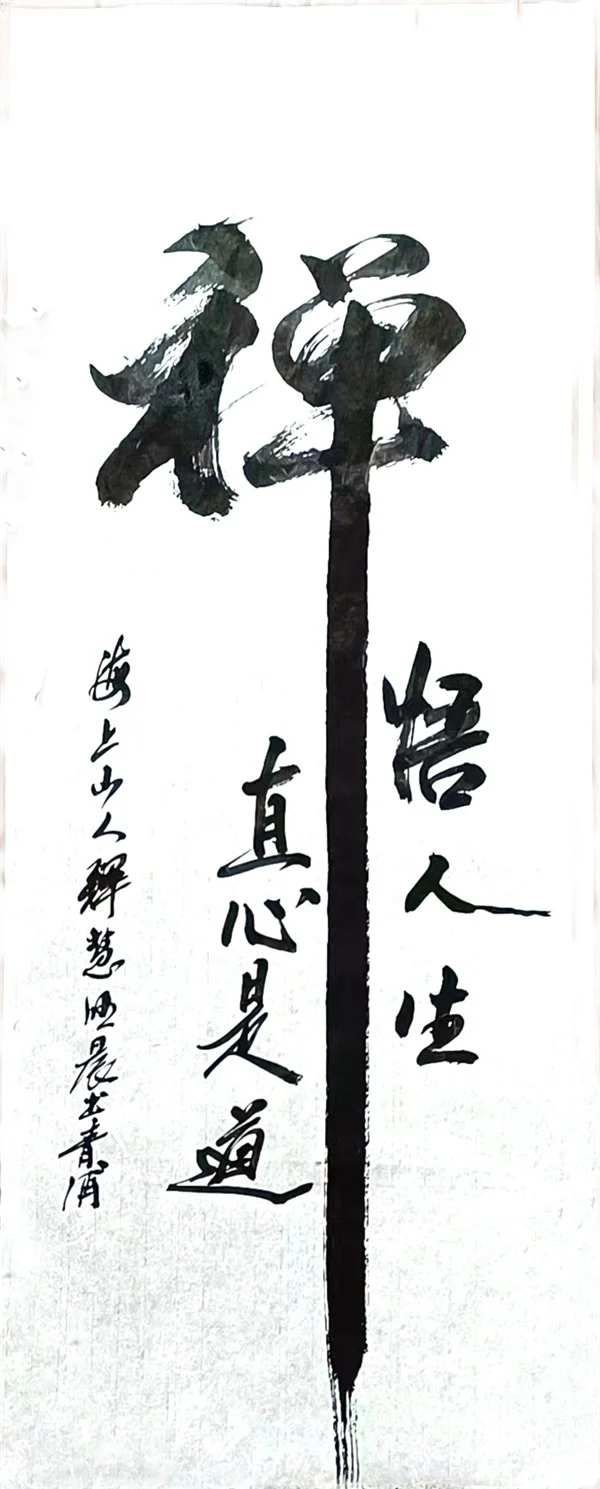 禅
悟人生
直心是道
海上山人释慧
晨书青